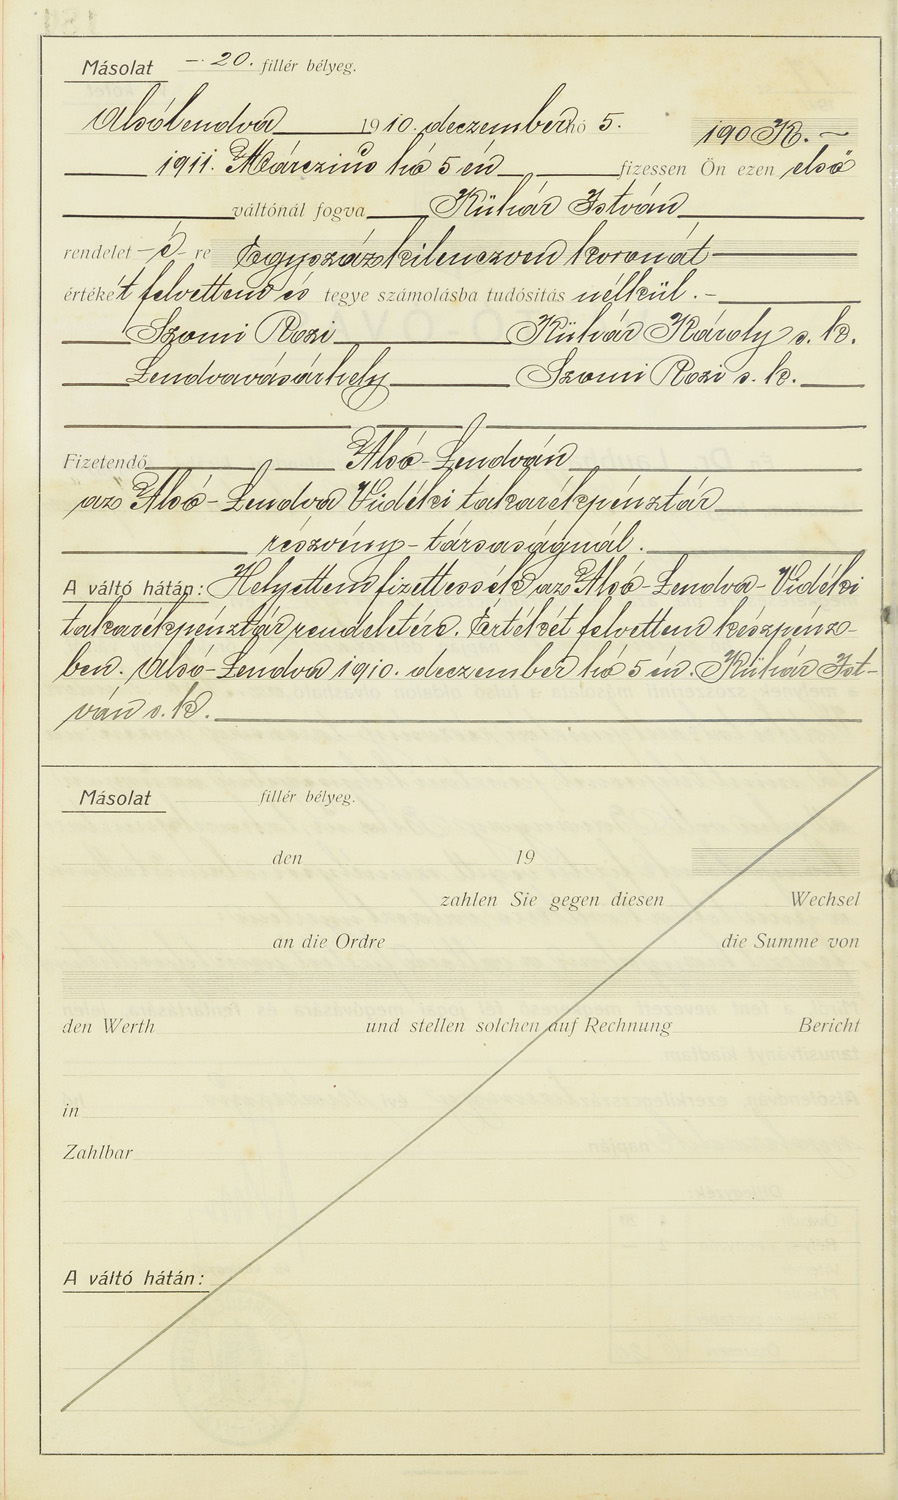 Másolat —.20. fillér bélyeg.
Alsólendva 1910. deczember hó 5. 190 K. —
1911. Márczius hó 5 én fizessen Ön ezen első
váltónál fogva Kühár István
rendelet –é– re Egyszázkilenczven koronát
értékét felvettem és tegye számolásba tudósítás nélkül. –
Szomi Rozi Kühár Károly s. k.
Lendvavásárhely Szomi Rozi s. k.
Fizetendő Alsó-Lendván
az Alsó-Lendva Vidéki takarékpénztár
részvény-társaságnál.
A váltó hátán: Helyettem fizettessék az Alsó-Lendva-Vidéki
takarékpénztár rendeletére. Értékét felvettem készpénz-
ben. Alsó-Lendva 1910. deczember hó 5 én. Kühár Ist-
ván s. k.
Másolat fillér bélyeg.
den 19
zahlen Sie gegen diesen Wechsel
an die Ordre die Summe von
den Werth und stellen solchen auf Rechnung Bericht
in
Zahlbar
A váltó hátán: